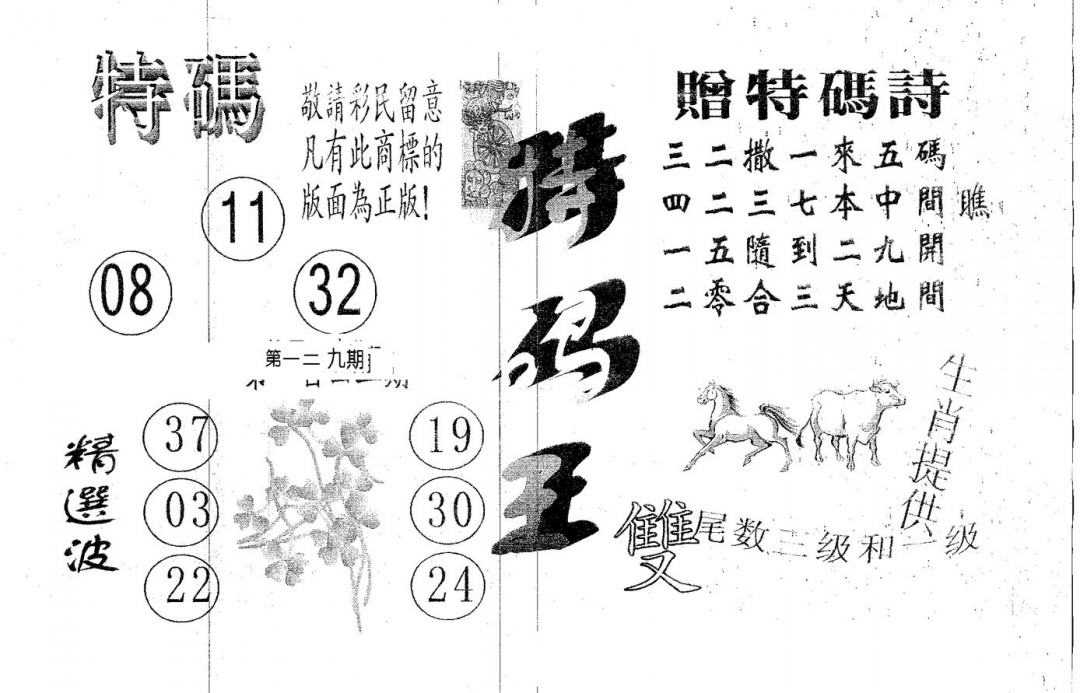 特碼
敬請彩民留意
凡有此商標的
版面為正版!
11
08
32
第一二九期
精選波
37
03
22
19
30
24
特码王
贈特碼詩
三二撒一來五碼
四二三七本中間瞧
一五隨到二九開
二零合三天地間
生肖提供
雙尾数二级和一级